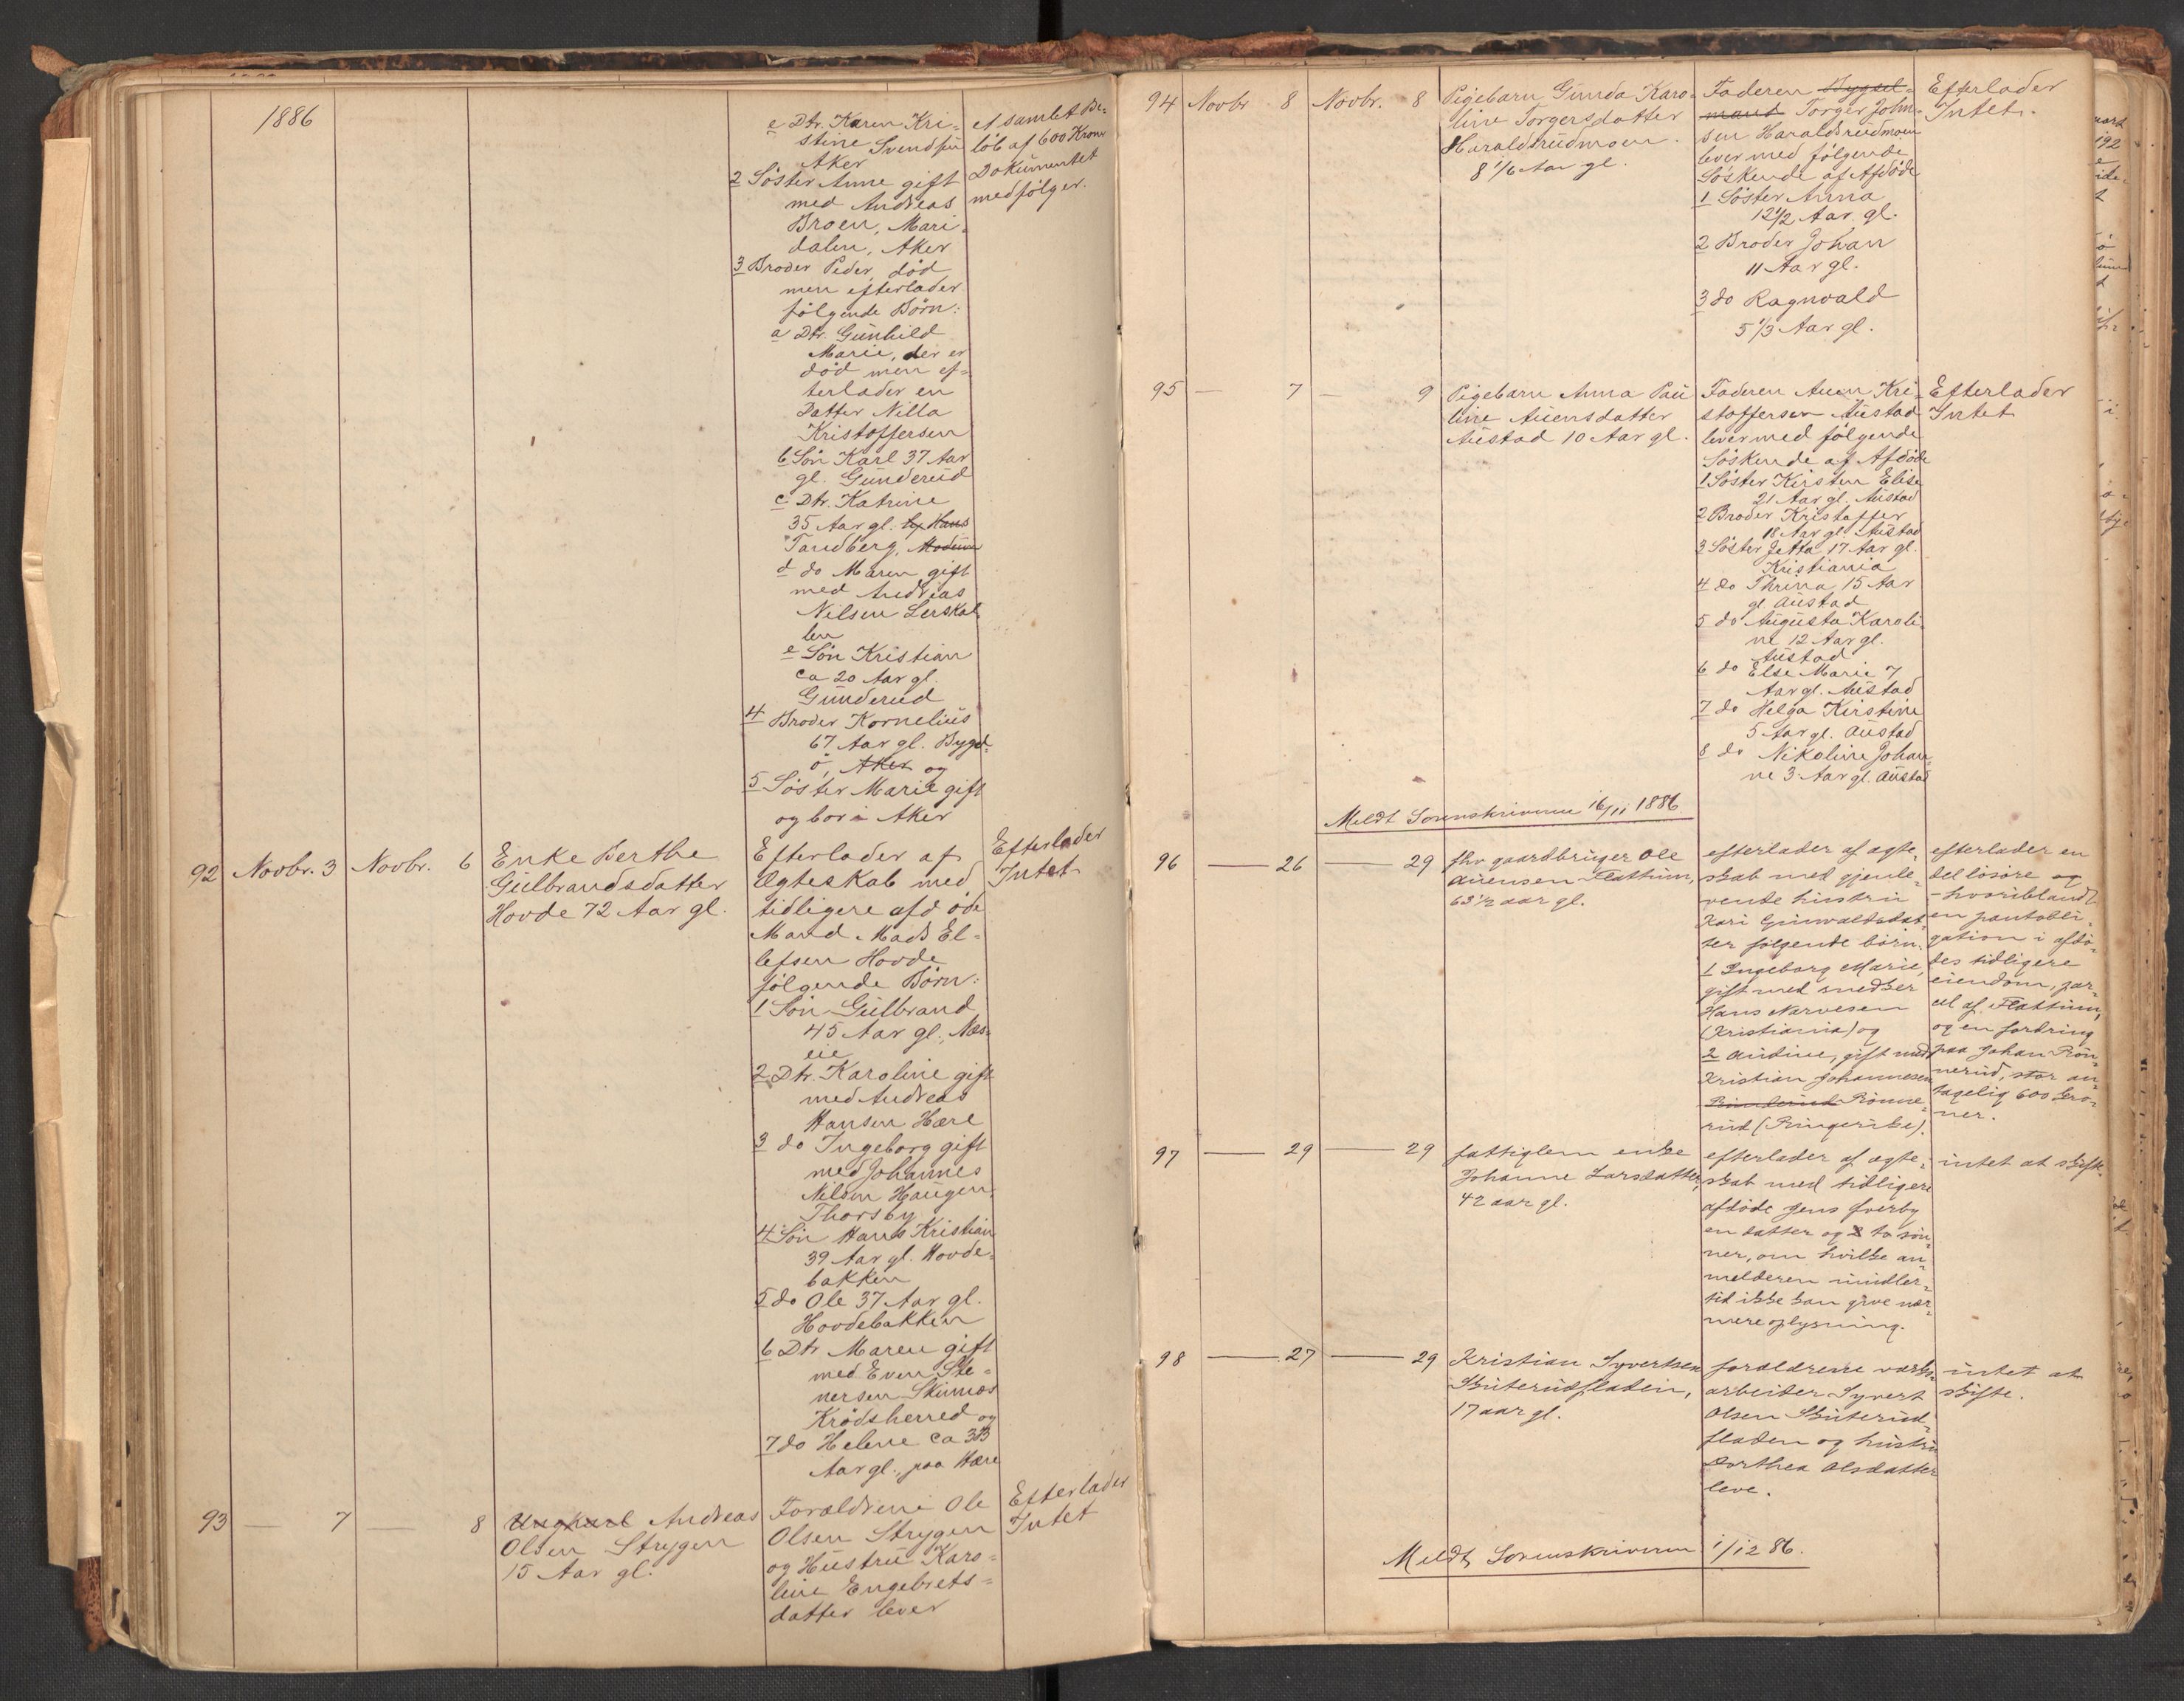 1886
e Dtr. Karen Kri-
stine Svendsen
Aker
2 Söster Anne gift
med Andreas
Broen, Mari-
dalen, Aker
3 Broder Peder, död
men efterlader
følgende Börn:
a Dtr. Gunhild
Marie, der er
död men ef-
terlader en
Datter Nilla
Kristoffersen
b Sön Karl 37 Aar
gl. Gunderud
c Dtr. Katrine
35 Aar gl. Hans
Tandberg, Modum
d do Maren gift
med Andreas
Nilsen Lerskal
len
e Sön Kristian
ca 20 Aar gl.
Gunderud
4 Broder Kornelius
67 Aar gl. Bygd-
ö, Aker og
5 Söster Marie gift
og bor i Aker
et samlet Be-
löb af 600 Kroner
Dokumentet
medfölger.
92 Novbr. 3 Novbr. 6
Enke Berthe
Gulbrandsdatter
Hovde 72 Aar gl.
Efterlader af
Ægteskab med
tidligere afdöde
Mand Mads El-
lefsen Hovde
følgende Börn:
1 Sön Gulbrand
45 Aar gl., Næs-
eie
2 Dtr. Karoline gift
med Andreas
Hansen Hære
3 do Ingeborg gift
med Johannes
Nilsen Haugen,
Thorsby
4 Sön Hans Kristian
39 Aar gl. Hovde-
bakken
5 do Ole 37 Aar gl.
Hovdebakken
6 Dtr Maren gift
med Even Ste-
nersen Skinnes
Krödsherred og
7 do Helene ca 33
Aar gl., paa Hære
Efterlader
Intet
93 — 7 — 8
Ungkarl Andreas
Olsen Strygen
15 Aar gl.
Forældrene Ole
Olsen Strygen
og Hustru Karo-
line Engebrets-
datter lever
Efterlader
Intet
94 Novbr 8 Novbr. 8
Pigebarn Gunda Karo-
line Torgersdatter
Haraldsrudmoen.
8 1/6 Aar gl.
Faderen Bygsel-
mand Torger John-
sen Haraldsrudmoen
lever med følgende
Söskende af Afdöde
1 Söster Anna
12 1/2 Aar. gl.
2 Broder Johan
11 Aar gl.
3 do Ragnvald
5 1/3 Aar gl.
Efterlader
Intet.
95 — 7 — 9
Pigebarn Anna Pau
line Auensdatter
Austad 10 Aar gl.
Faderen Auen Kri-
stoffersen Austad
lever med følgende
Söskende af Afdöde
1 Söster Kirsten Elise
21 Aar gl. Austad
2 Broder Kristoffer
18 Aar gl. Austad
3 Söster Jetta 17 Aar gl.
Kristiania
4 do Thrina 15 Aar
gl. Austad
5 do Augusta Karoli-
ne 12 Aar gl.
Austad
6 do Else Marie 7
Aar gl. Austad
7 do Helga Kirstine
5 Aar gl. Austad
8 do Nikoline Johan-
ne 3 Aar gl. Austad
Efterlader
Intet
Meldt Sorenskriveren 16/11 1886
96 — 26 — 29
fhv gaardbruger Ole
Auensen Flattum,
63 1/2 aar gl.
efterlader af ægte-
skab med gjenle-
vende hustru
Kari Gunvaldsdat-
ter følgende børn:
1 Ingeborg Marie,
gift med snedker
Hans Narvesen
(Kristiania) og
2 Audine, gift med
Kristian Johannesen
Rønne-
rud (Ringerike).
efterlader en
del løsøre og
- hvoriblandt
en pantobli-
gation i afdø-
des tidligere
eiendom, par-
cel af Flattum,
og en fordring
paa Johan Røn-
nerud, stor an-
tagelig 600 kro-
ner.
97 — 29 — 29
fattiglem enke
Johanne Larsdatter,
42 aar gl.
efterlader af ægte-
skab med tidligere
afdøde Jens Hverby
en datter og 2 to søn-
ner, om hvilke an-
melderen imidler-
tid ikke kan give nær-
mere oplysning.
intet at skifte.
98 — 27 — 29
Kristian Syvertsen
Skuterudfladen,
17 aar gl.
forældrene værks-
arbeider Syvert
Olsen Skuterud-
fladen og hustru
Dorthea Olsdatter
leve.
intet at
skifte.
Meldt Sorenskriveren 1/12 86.